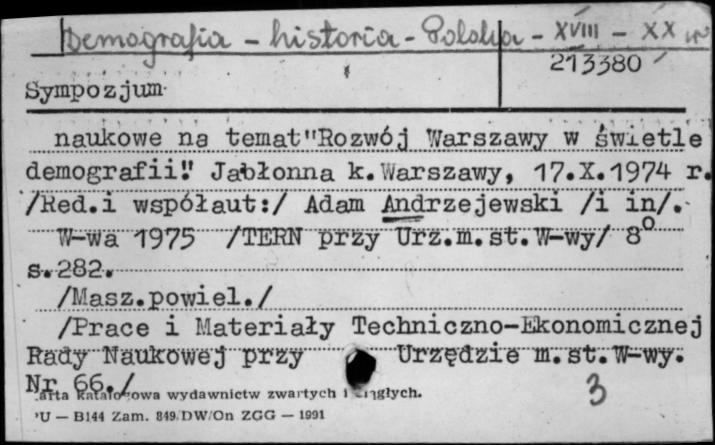 Demografia - historia - Polska - XVIII - XX w
213380
Sympozjum
naukowe na temat "Rozwój Warszawy w świetle
demografii". Jabłonna k.Warszawy, 17.X.1974 r.
/Red.i współaut:/ Adam Andrzejewski /i in/.
W-wa 1975 /TERN przy Urz.m.st.W-wy/ 8°
s.282.
/Masz.powiel./
/Prace i Materiały Techniczno-Ekonomicznej
Rady Naukowej przy Urzędzie m.st.W-wy.
Nr 66./
3
Karta katalogowa wydawnictw zwartych i ciągłych.
PU — B144 Zam. 849/DW/On ZGG — 1991